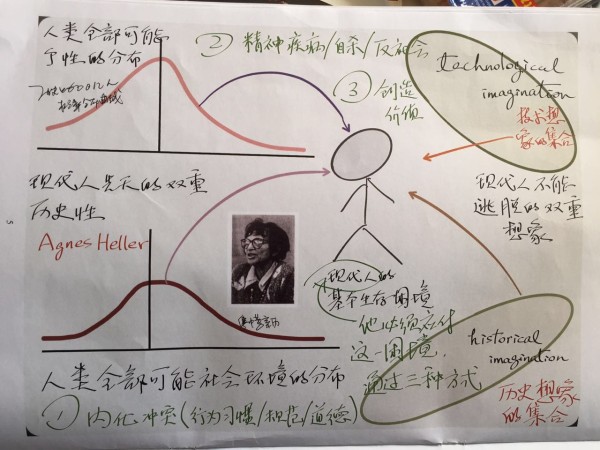 人类全部可能
个性的分布
② 精神疾病/自杀/反社会
③ 创造
价值
technological
imagination
技术想
象的集合
现代人先天的双重
历史性
Agnes Heller
现代人不能
逃脱的双重
想象
现代人的
基本生存困境
他必须应付
这一困境,
通过三种方式
historical
imagination
历史想象
的集合
人类全部可能社会环境的分布
① 内化冲突(行为习惯/规范/道德)
5